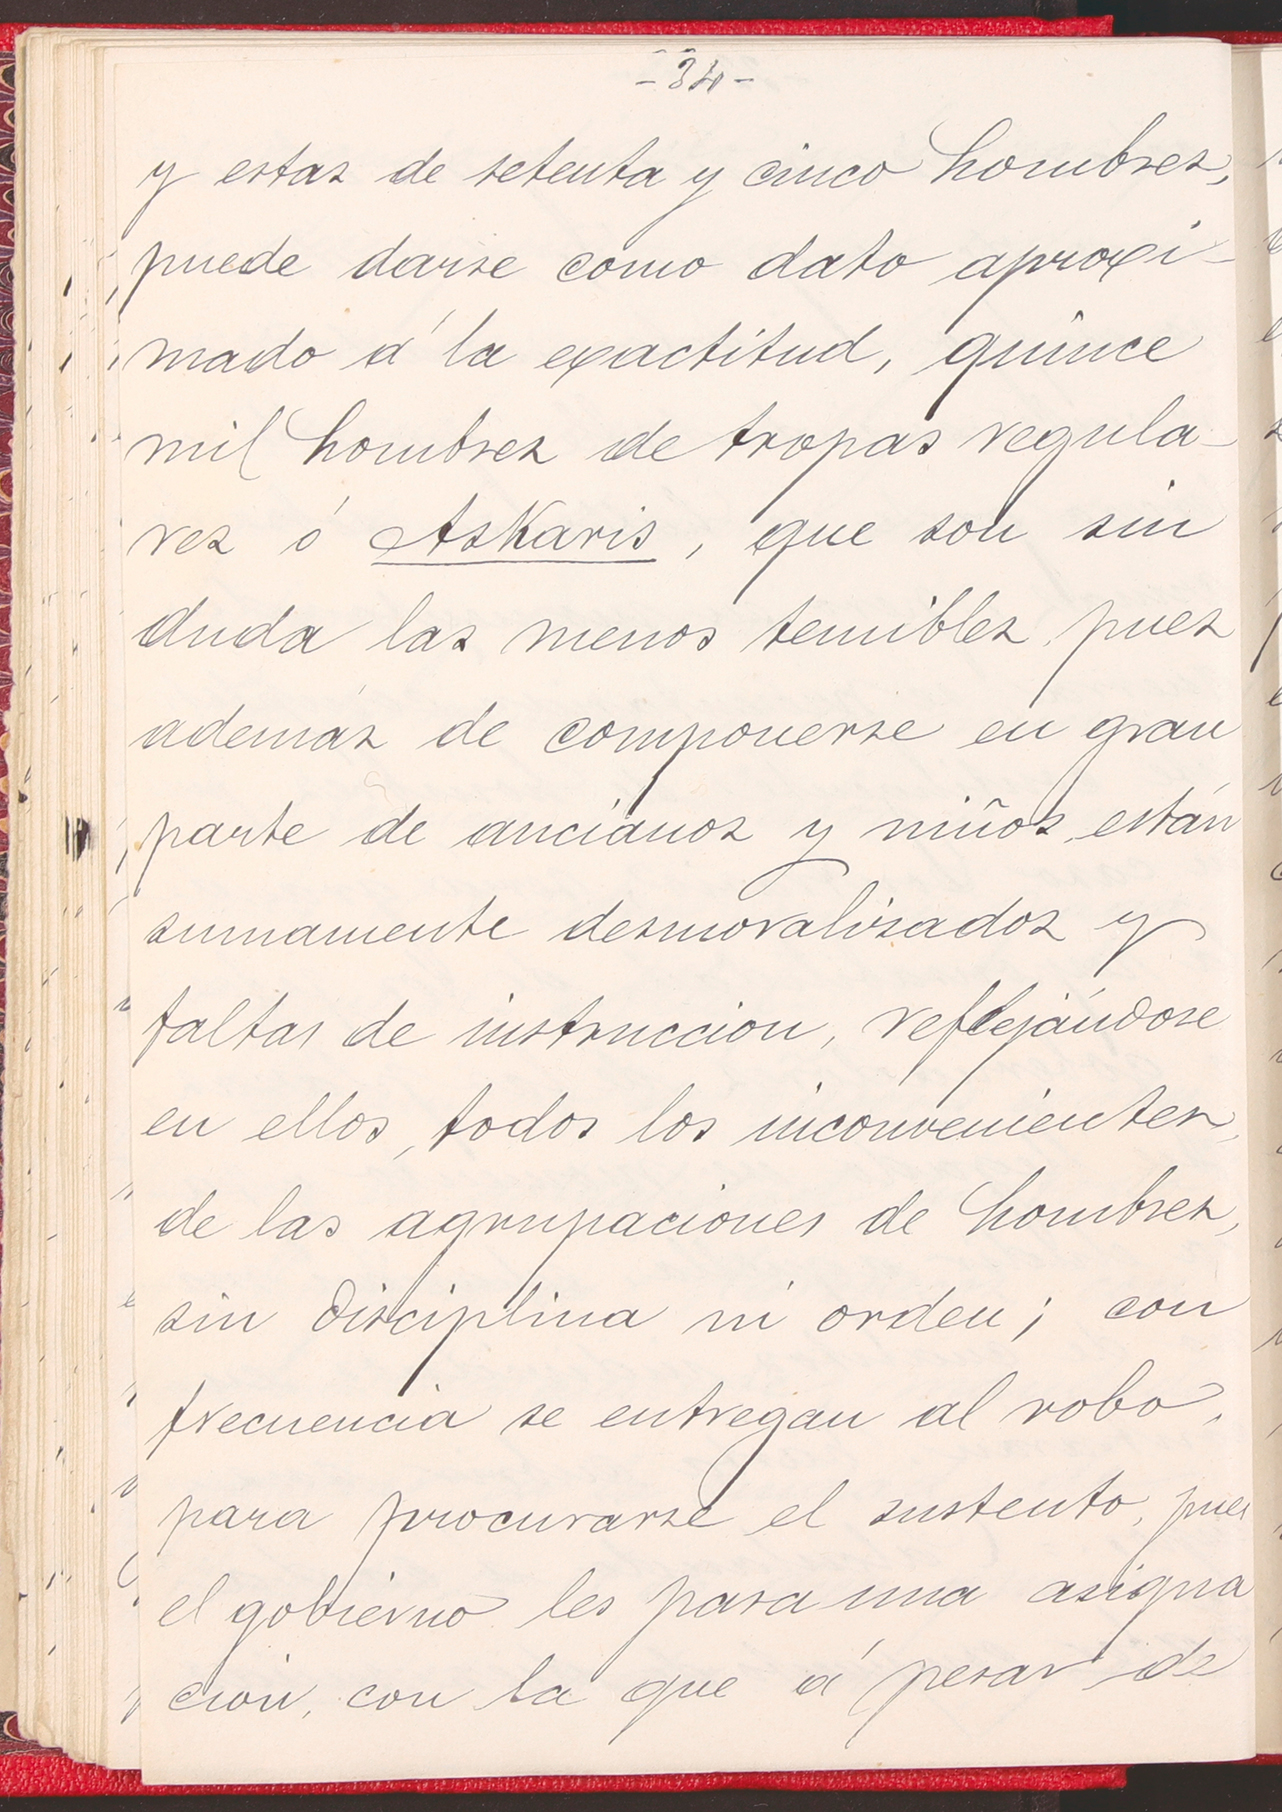 -34-
y estas de setenta y cinco hombres,
puede darse como dato aproxi-
mado á la exactitud, quince
mil hombres de tropas regula-
res ó Askaris, que son sin
duda las menos temibles, pues
además de componerse en gran
parte de ancianos y niños, están
sumamente desmoralisados y
faltas de instruccion, reflejándose
en ellos, todos los inconvenientes,
de las agrupaciones de hombres,
sin disciplina ni orden; con
frecuencia se entregan al robo,
para procurarse el sustento, pues
el gobierno les pasa una asigna
ción, con la que á pesar de